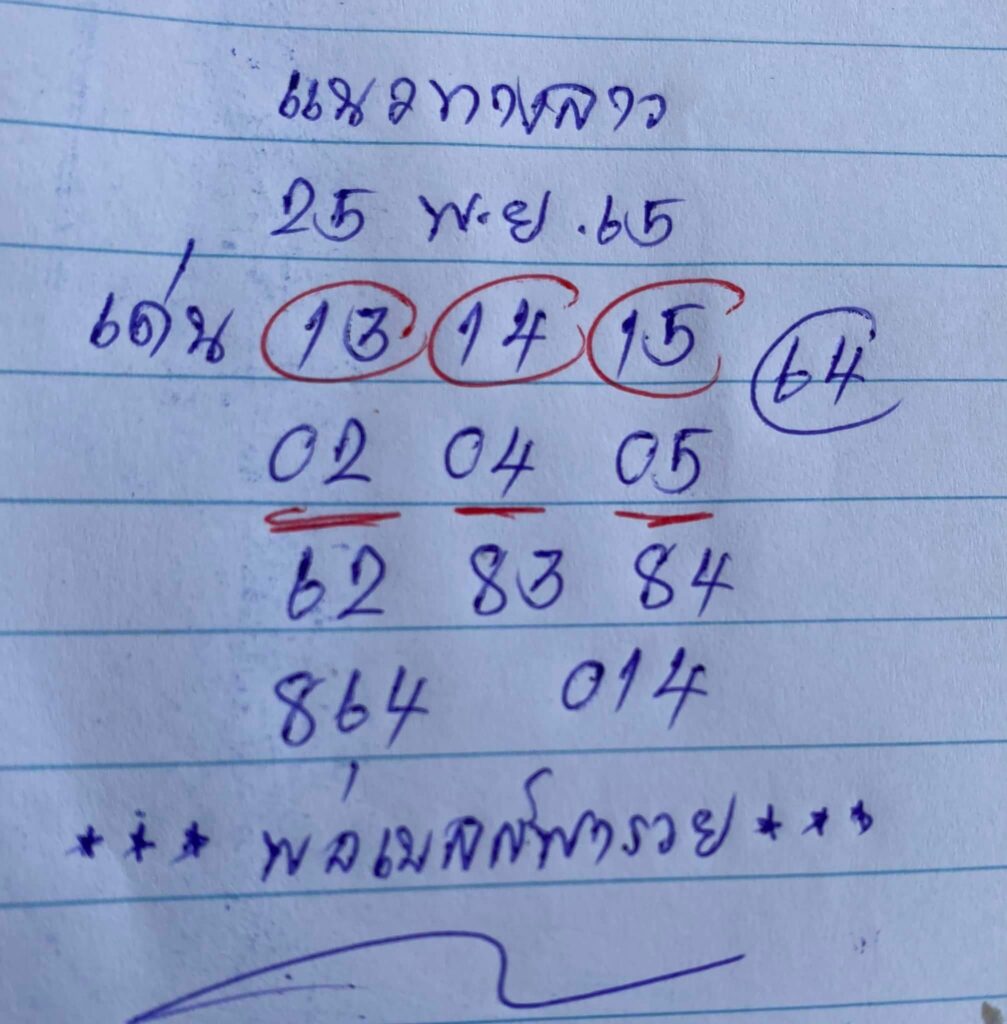 แนวทางลาว
25 พ.ย.65
เด่น 13 14 15 64
02 04 05
62 83 84
864 014
*** พ่อเบสส์พารวย ***